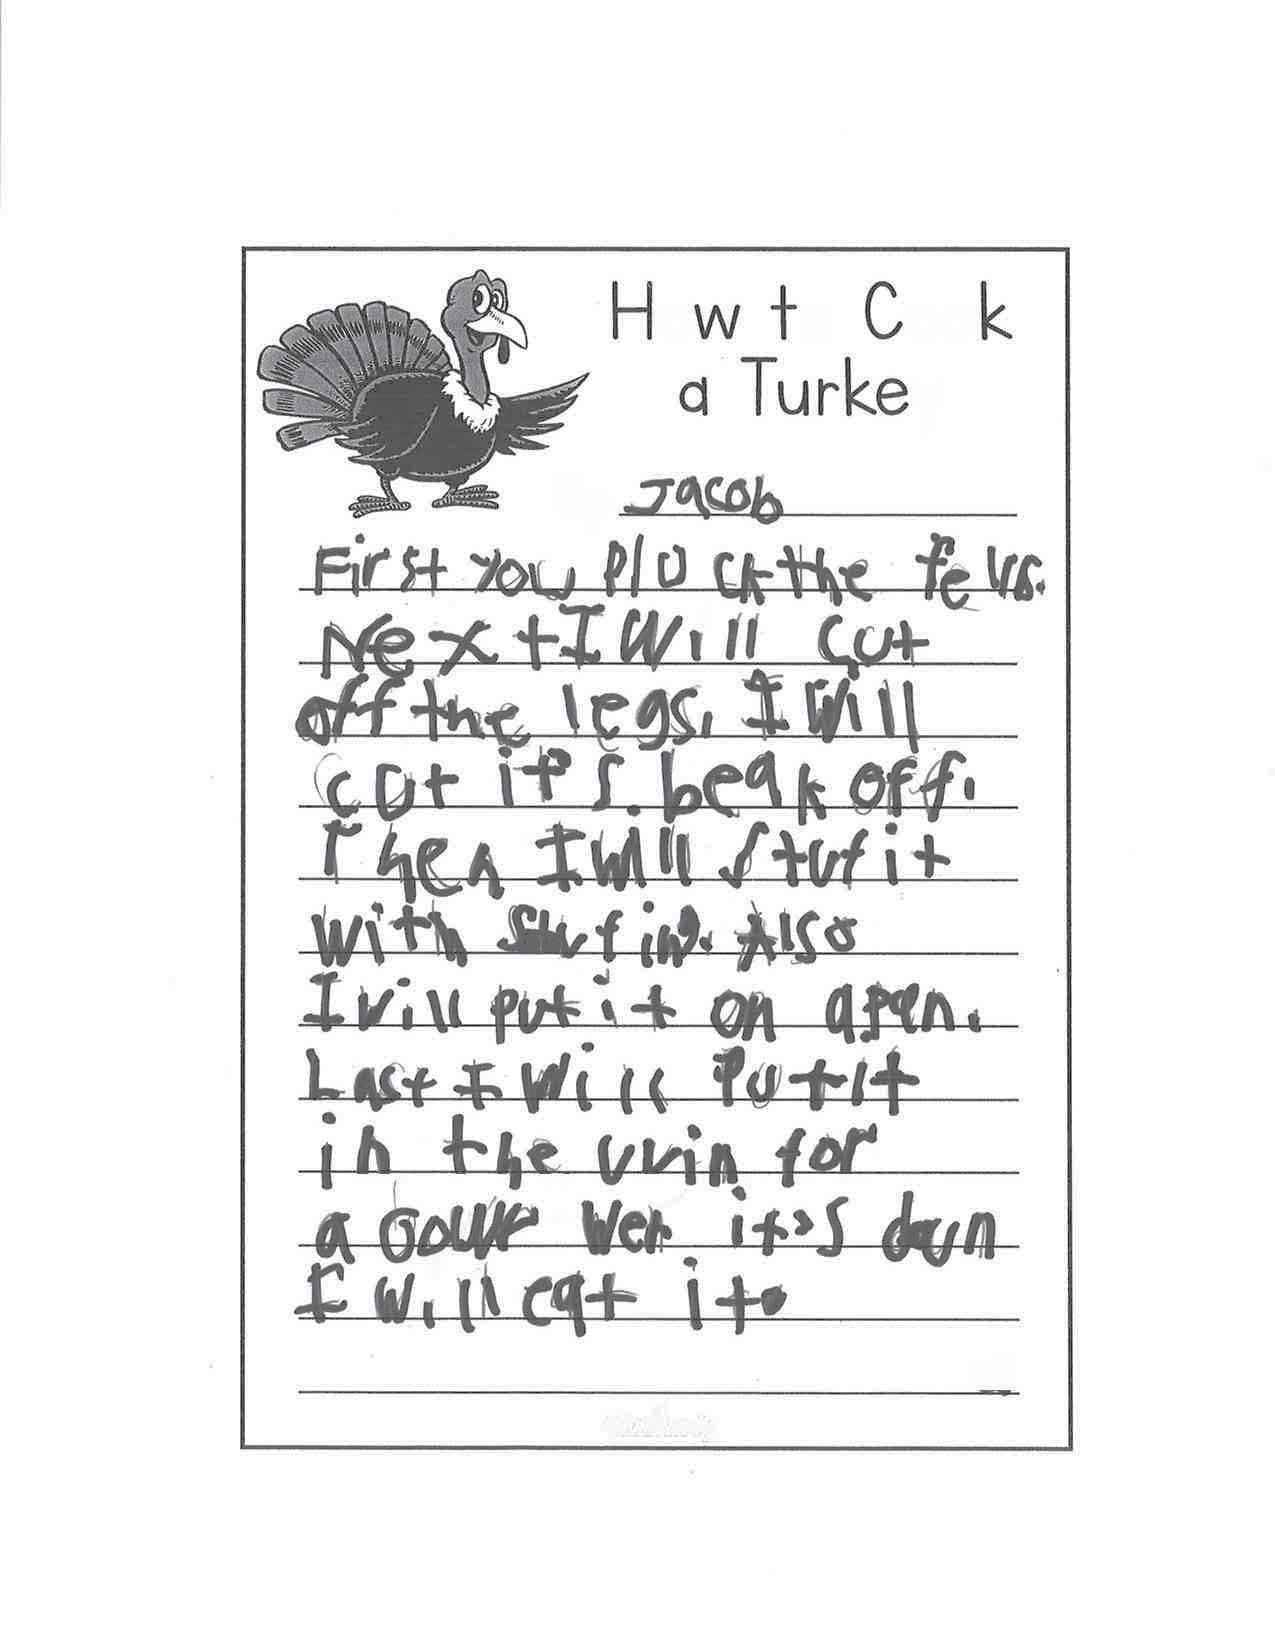 H w t C k
a Turke
Jacob
First you pluck the
Next I will cut
off the legs. I will
cut it's beak off.
Then I will stuf it
with stufing. Also
I will put it on a pan.
Last I will Put it
in the uvin for
a Wen it's down
I will eat it.